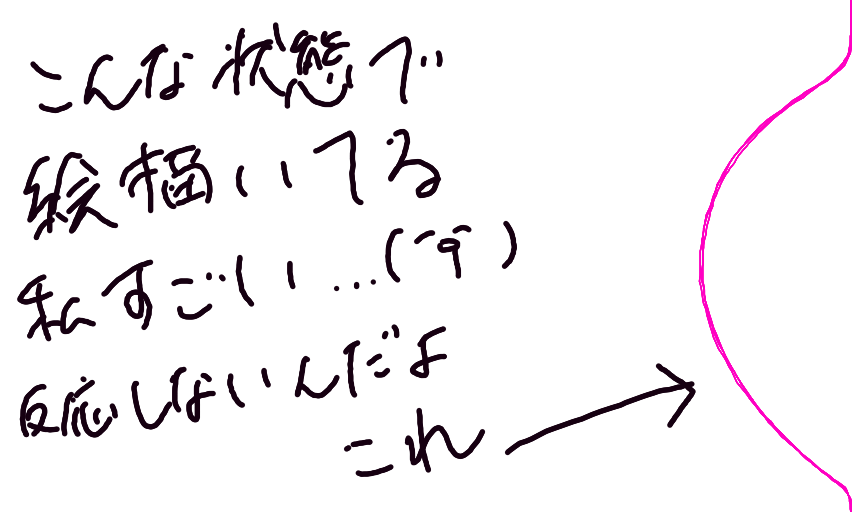 こんな状態で
絵描いてる
私すごい...(^q^)
反応しないんだよ
これ